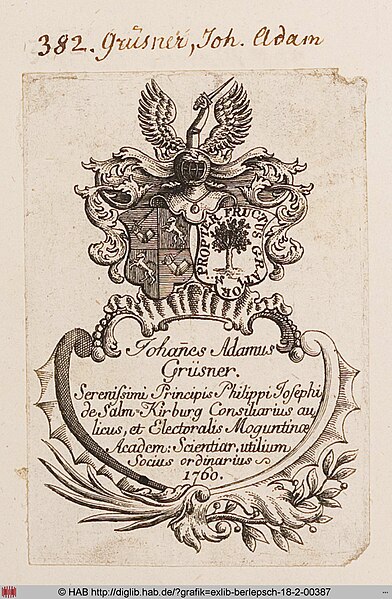 382. Grüsner, Joh. Adam
PROPTER FRUCTUS GRATIOR
Johañes Adamus
Grüsner.
Serenissimi Principis Philippi Josephi
de Salm-Kirburg Consiliarius au,
licus, et Electoralis Moguntinæ
Academ: Scientiar. utilium
Socius ordinarius
1760.
© HAB http://diglib.hab.de/?grafik=exlib-berlepsch-18-2-00387